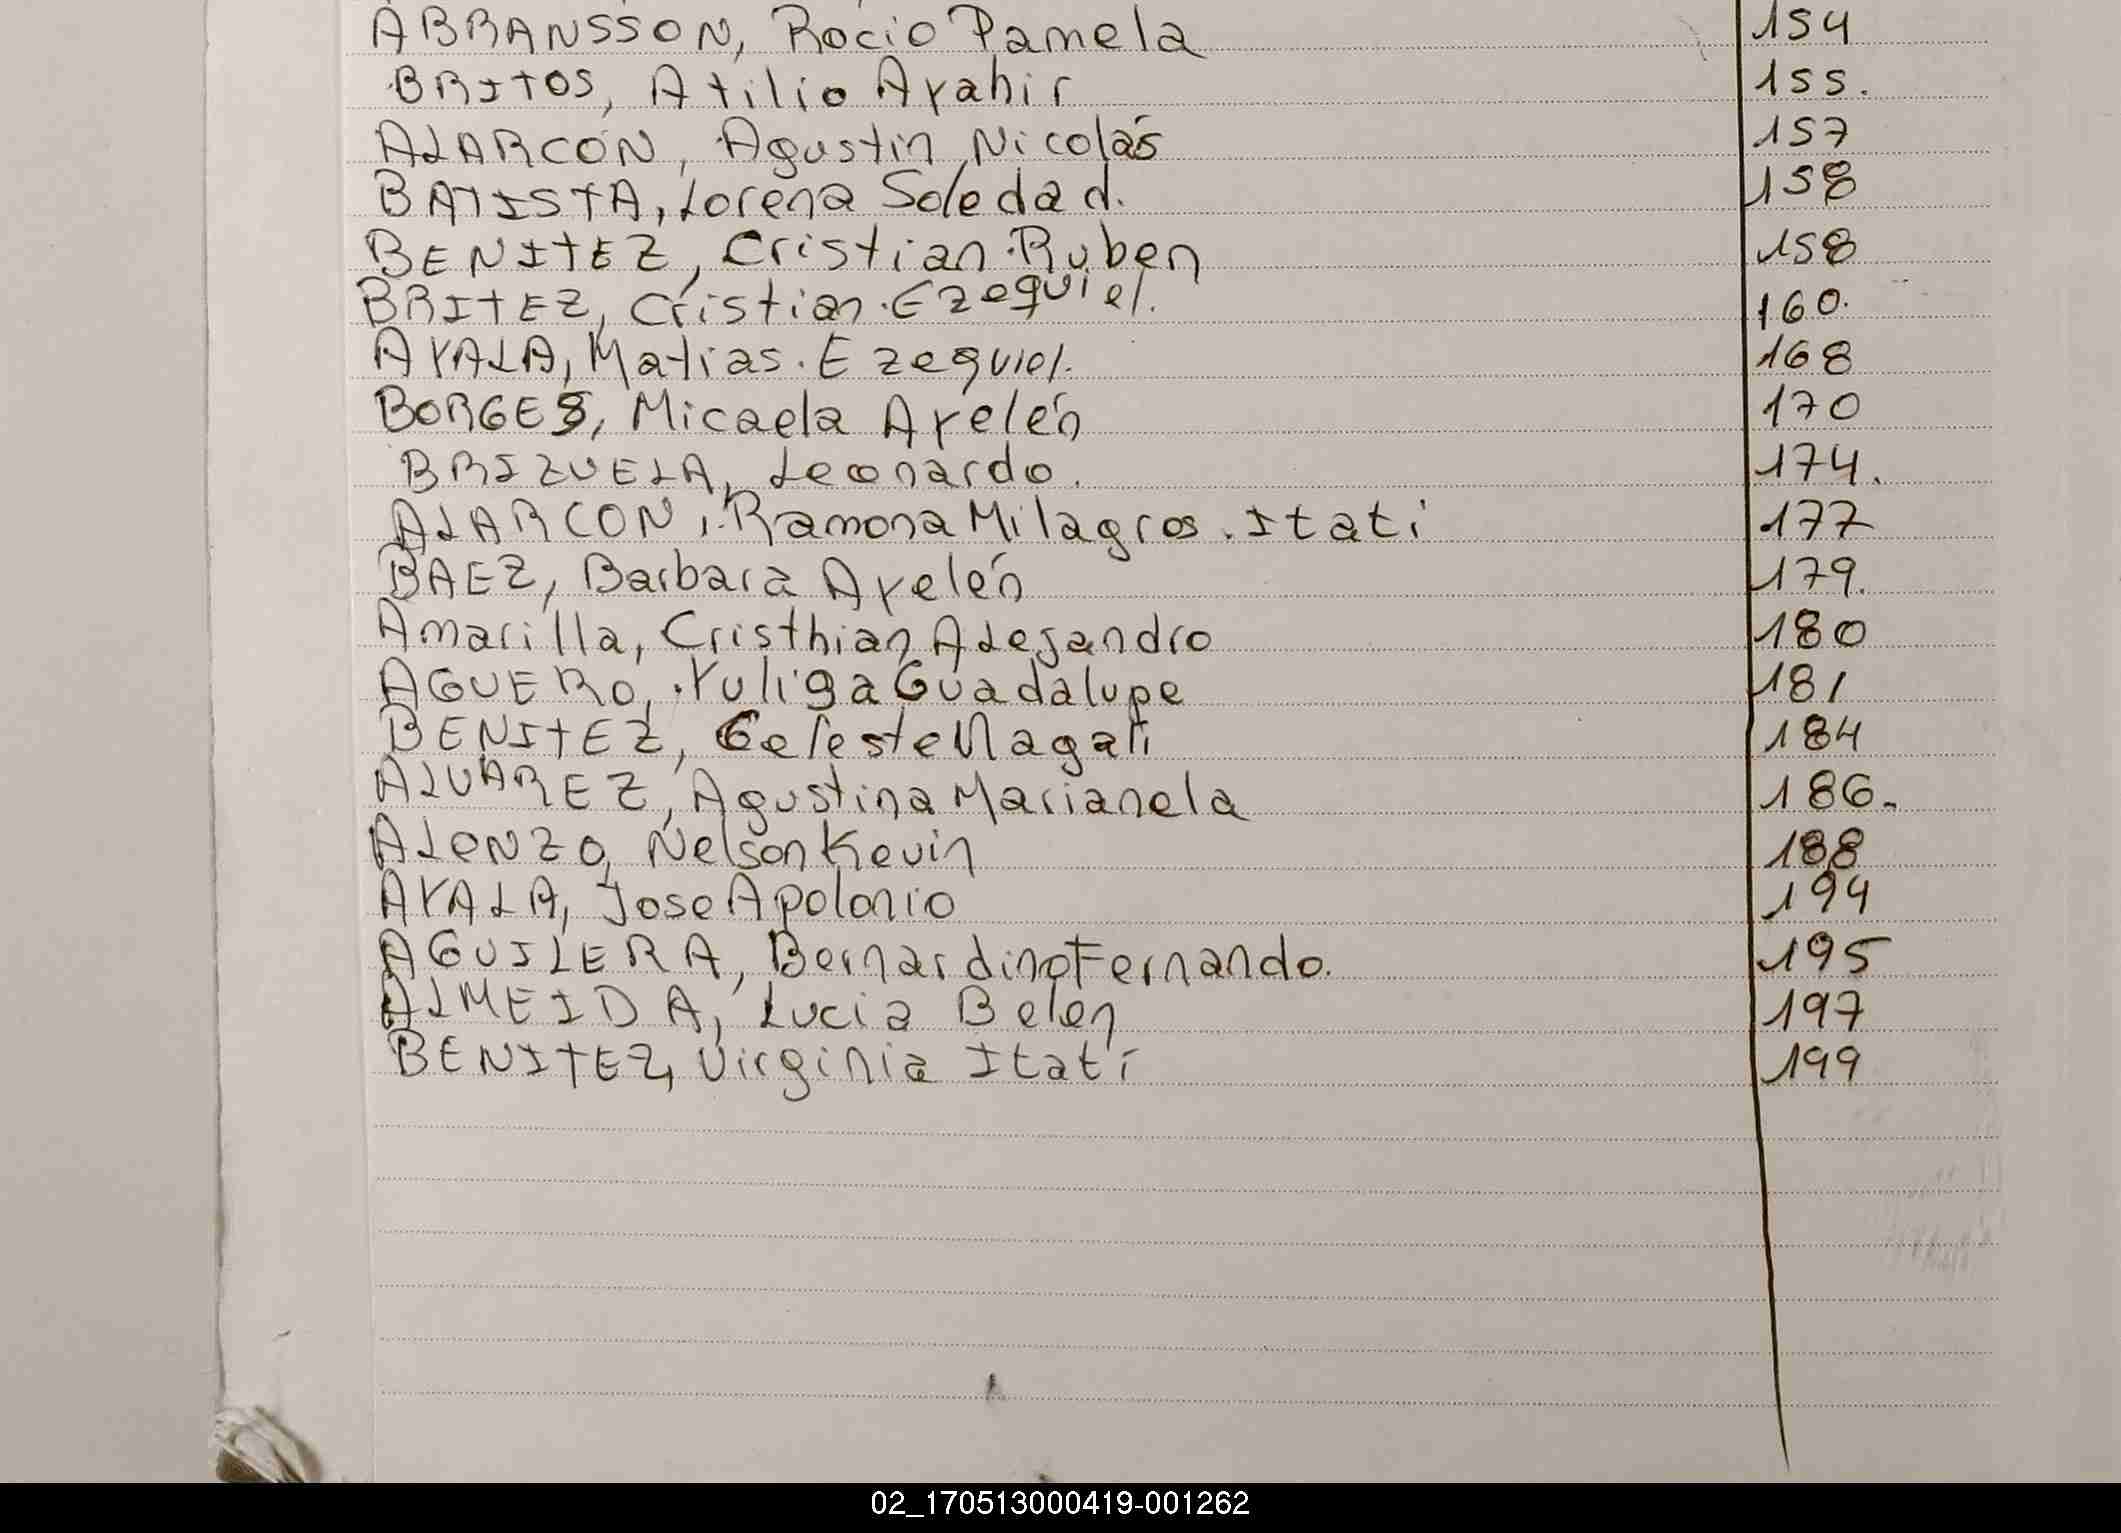 ABRANSSON, Rocio Pamela 154
BRITOS, Atilio Ayahir 155.
ALARCÓN, Agustin Nicolás 157
BATISTA, Lorena Soledad. 158
BENITEZ, Cristian Ruben 158
BRITEZ, Cristian Ezequiel. 160.
AYALA, Matias Ezequiel. 168
BORGES, Micaela Ayelén 170
BRIZUELA, Leonardo. 174.
ALARCON, Ramona Milagros. Itatí 177
BAEZ, Barbara Ayelén 179.
Amarilla, Cristhian Alejandro 180
AGUERO, Yuliga Guadalupe 181
BENITEZ, Celeste Magali 184
ALVAREZ, Agustina Marianela 186.
ALONZO, Nelson Kevin 188
AYALA, Jose Apolonio 194
AGUILERA, Bernardino Fernando. 195
ALMEIDA, Lucia Belen 197
BENITEZ, Virginia Itatí 199
02_170513000419-001262